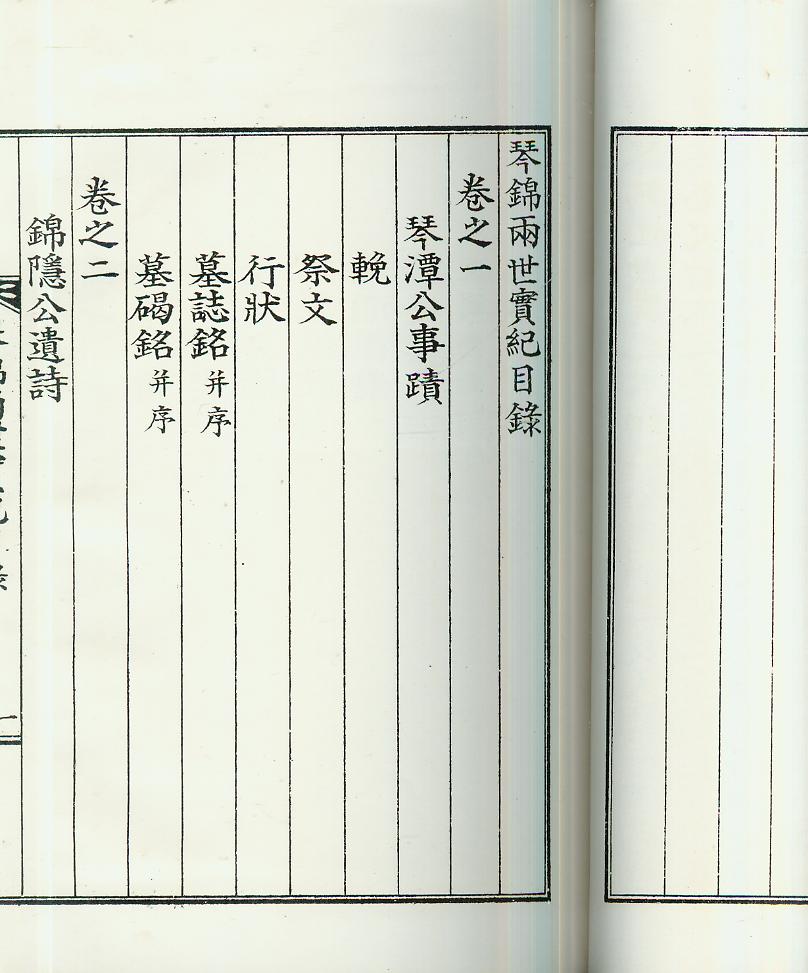 琴錦兩世實紀目錄
卷之一
琴潭公事蹟
輓
祭文
行狀
墓誌銘 并序
墓碣銘 并序
卷之二
錦隱公遺詩